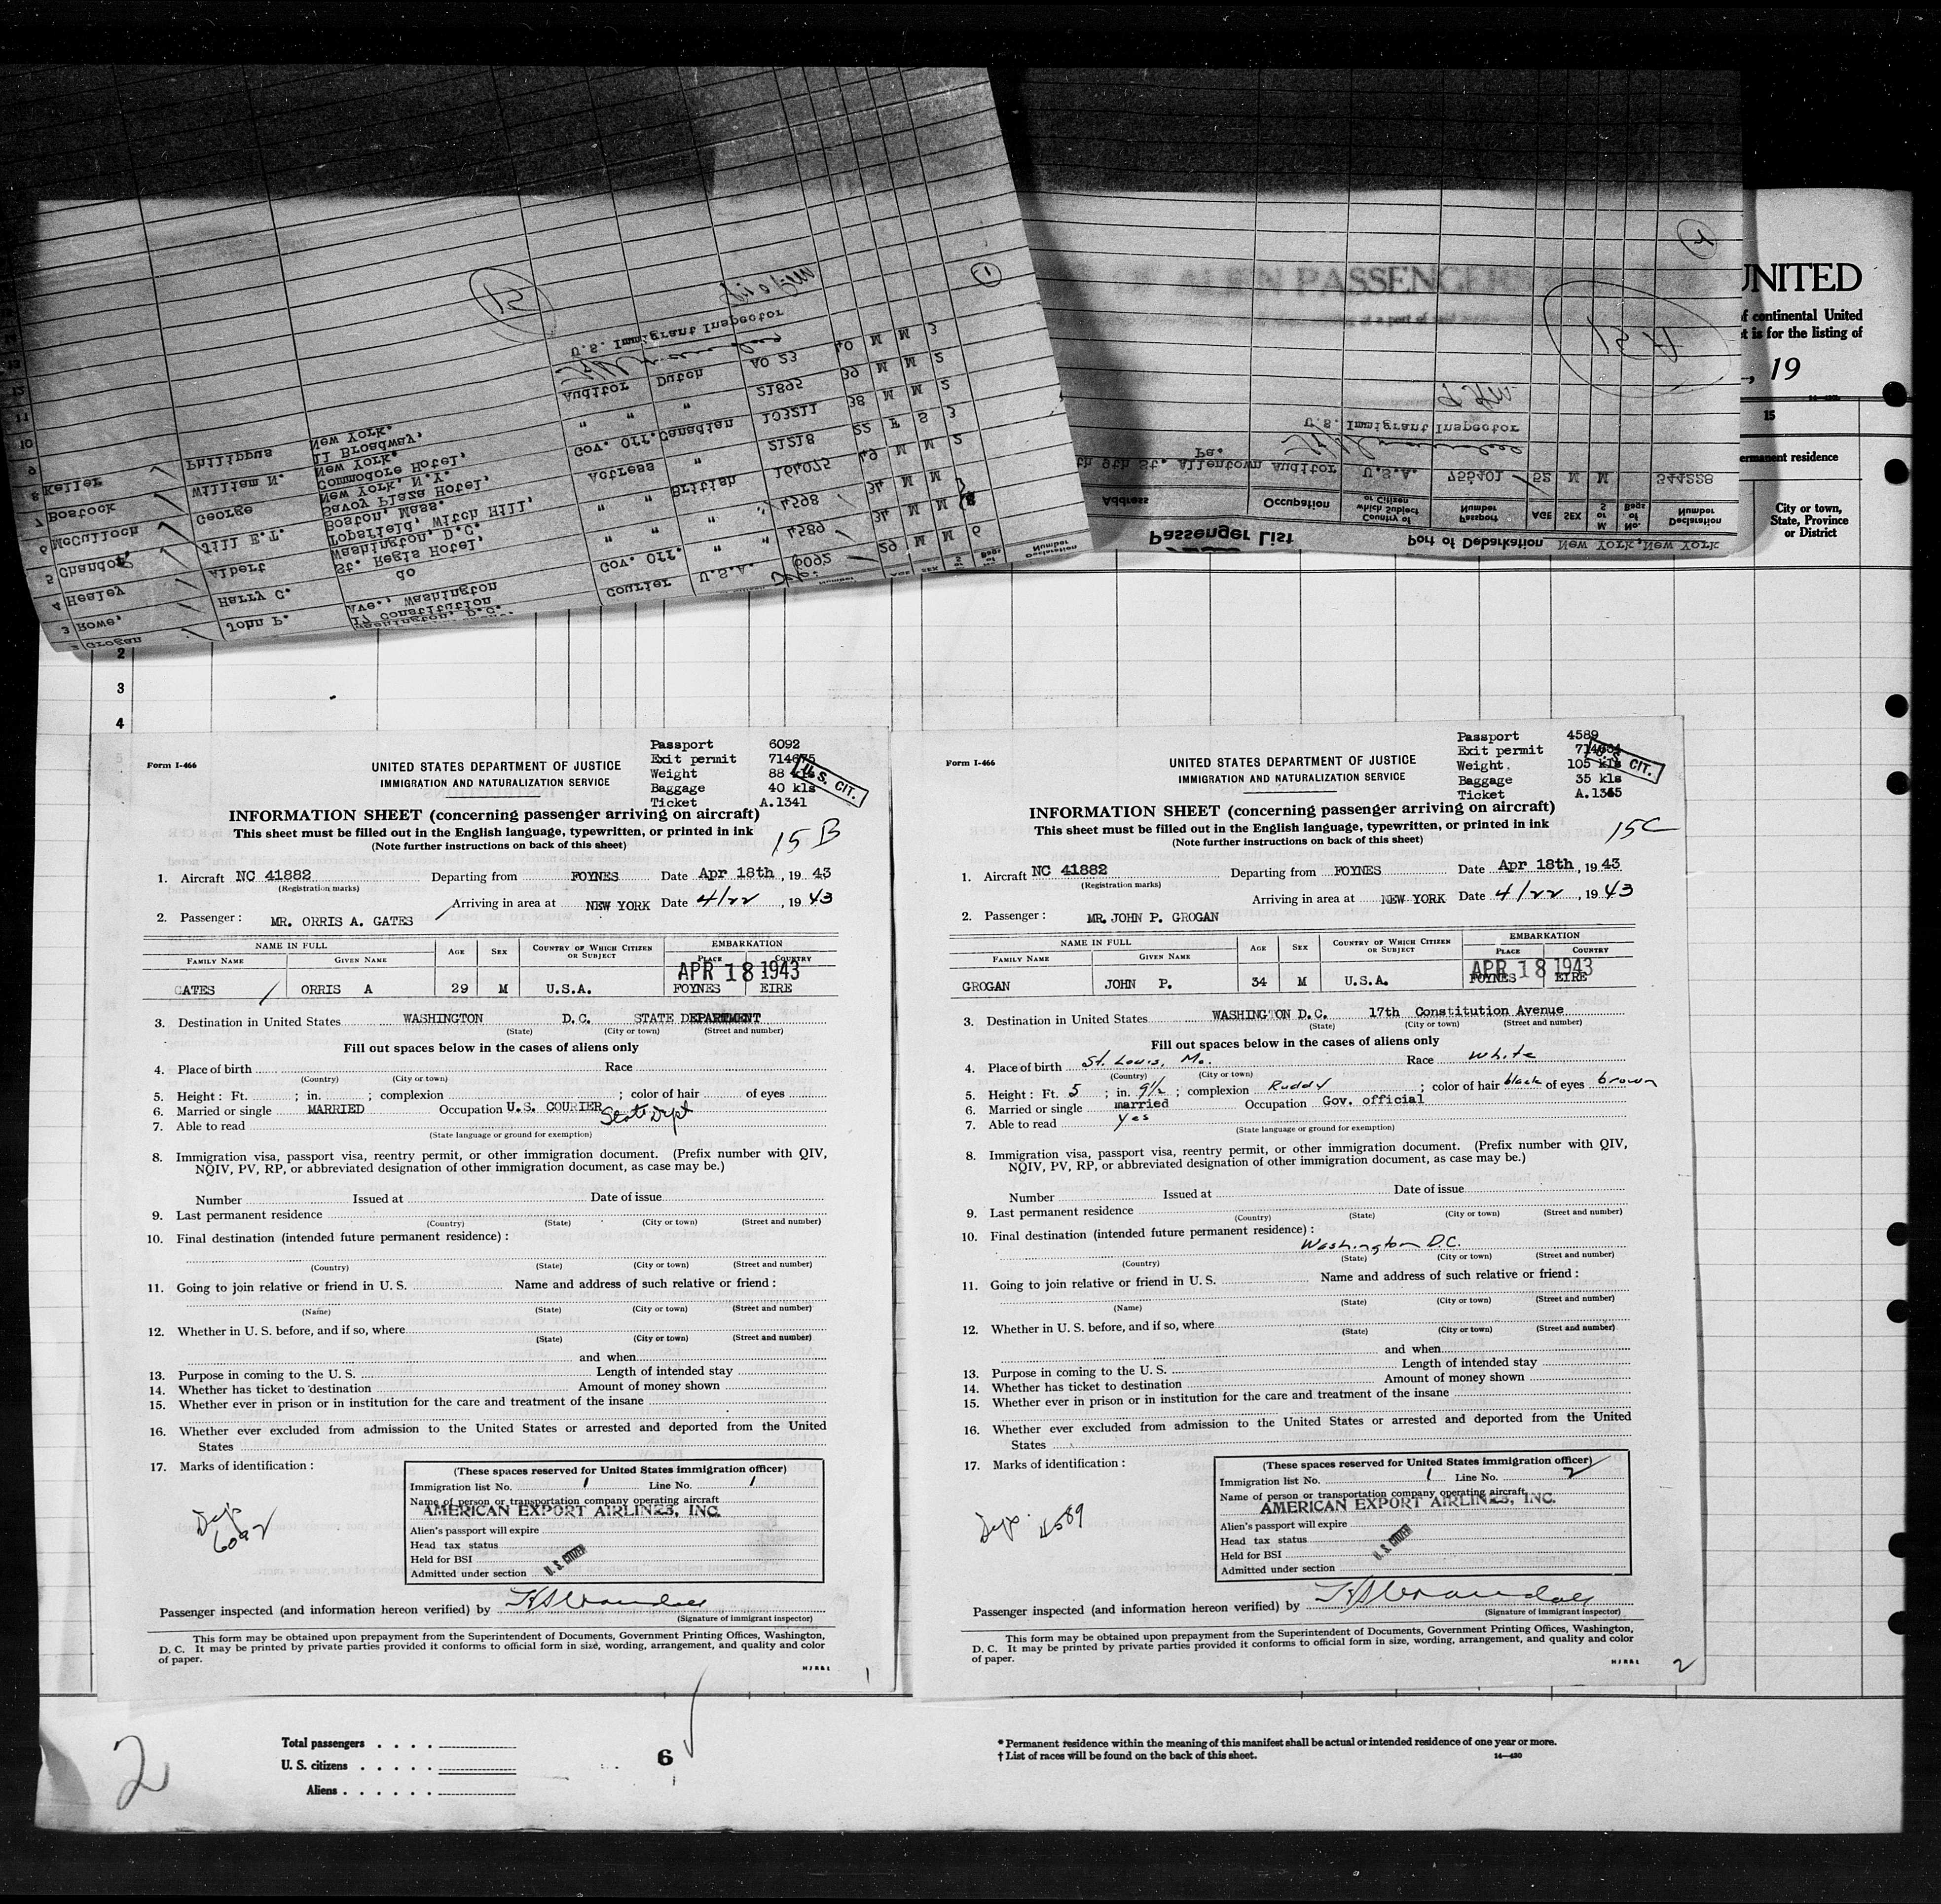 UNITED
of continental United
t is for the listing of
, 19
15
ermanent residence
City or town,
State, Province
or District
2 Grogan John P. Washington, D.C.
17 Constitution Ave., Washington Gov. Off. " " 4589 34 M M
3 Rowe, Harry C. do " " " 4598 34 M M
4 Healey Albert St. Regis Hotel, Washington, D.C. " British 164075 49 M M 2
5 Chandor, Jill E.T. Topsfield, Witch Hill, Boston, Mass. Actress " 21218 22 F S 3
6 McCulloch George Savoy Plaza Hotel, New York, N.Y. Gov. Off. Canadian 103211 38 M M 2
7 Bostock William N. Commodore Hotel, New York. " " 21895 39 M M 2
8 Keller Philippus 11 Broadway, New York. Auditor Dutch AO 23 40 M M 3
9
10
11
12
13
Courier U.S.A. 6092 29 M M 6
U.S. Immigrant Inspector
15
1
Passenger List
Port of Debarkation New York, New York
Address Occupation Country of which Subject or Citizen Passport Number AGE SEX S or M No. of Bags Declaration Number
th 9th St. Allentown Pa. Auditor U.S.A. 755401 52 M M 544228
U.S. Immigrant Inspector
15A
OF ALIEN PASSENGERS
2
3
4
Form I-466
UNITED STATES DEPARTMENT OF JUSTICE
IMMIGRATION AND NATURALIZATION SERVICE
Passport 6092
Exit permit 714675
Weight 88 kls
Baggage 40 kls
Ticket A.1341
U.S. CIT.
INFORMATION SHEET (concerning passenger arriving on aircraft)
This sheet must be filled out in the English language, typewritten, or printed in ink
(Note further instructions on back of this sheet)
15 B
1. Aircraft NC 41882 Departing from FOYNES Date Apr 18th, 1943
(Registration marks)
Arriving in area at NEW YORK Date 4/22, 1943
2. Passenger: MR. ORRIS A. GATES
NAME IN FULL AGE SEX COUNTRY OF WHICH CITIZEN OR SUBJECT EMBARKATION
FAMILY NAME GIVEN NAME PLACE COUNTRY
APR 18 1943
GATES ORRIS A 29 M U.S.A. FOYNES EIRE
3. Destination in United States WASHINGTON D.C. STATE DEPARTMENT
(State) (City or town) (Street and number)
Fill out spaces below in the cases of aliens only
4. Place of birth Race
(Country) (City or town)
5. Height: Ft. ; in. ; complexion ; color of hair of eyes
6. Married or single MARRIED Occupation U.S. COURIER State Dept
7. Able to read
(State language or ground for exemption)
8. Immigration visa, passport visa, reentry permit, or other immigration document. (Prefix number with QIV,
NQIV, PV, RP, or abbreviated designation of other immigration document, as case may be.)
Number Issued at Date of issue
9. Last permanent residence
(Country) (State) (City or town) (Street and number)
10. Final destination (intended future permanent residence):
(Country) (State) (City or town) (Street and number)
11. Going to join relative or friend in U. S. Name and address of such relative or friend:
(Name) (State) (City or town) (Street and number)
12. Whether in U. S. before, and if so, where
(State) (City or town) (Street and number)
and when
13. Purpose in coming to the U. S. Length of intended stay
14. Whether has ticket to destination Amount of money shown
15. Whether ever in prison or in institution for the care and treatment of the insane
16. Whether ever excluded from admission to the United States or arrested and deported from the United
States
17. Marks of identification:
(These spaces reserved for United States immigration officer)
Immigration list No. 1 Line No. 1
Name of person or transportation company operating aircraft
AMERICAN EXPORT AIRLINES, INC.
Alien's passport will expire
Head tax status
Held for BSI
Admitted under section U. S. CITIZEN
6092
Passenger inspected (and information hereon verified) by
(Signature of immigrant inspector)
This form may be obtained upon prepayment from the Superintendent of Documents, Government Printing Offices, Washington,
D. C. It may be printed by private parties provided it conforms to official form in size, wording, arrangement, and quality and color
of paper.
1
Form I-466
UNITED STATES DEPARTMENT OF JUSTICE
IMMIGRATION AND NATURALIZATION SERVICE
Passport 4589
Exit permit
Weight. 105 kls
Baggage 35 kls
Ticket A.1345
CIT.
INFORMATION SHEET (concerning passenger arriving on aircraft)
This sheet must be filled out in the English language, typewritten, or printed in ink
(Note further instructions on back of this sheet)
15C
1. Aircraft NC 41882 Departing from FOYNES Date Apr 18th, 1943
(Registration marks)
Arriving in area at NEW YORK Date 4/22, 1943
2. Passenger: MR. JOHN P. GROGAN
NAME IN FULL AGE SEX COUNTRY OF WHICH CITIZEN OR SUBJECT EMBARKATION
FAMILY NAME GIVEN NAME PLACE COUNTRY
APR 18 1943
GROGAN JOHN P. 34 M U.S.A. FOYNES EIRE
3. Destination in United States WASHINGTON D.C. 17th Constitution Avenue
(State) (City or town) (Street and number)
Fill out spaces below in the cases of aliens only
4. Place of birth St. Louis, Mo. Race White
(Country) (City or town)
5. Height: Ft. 5 ; in. 9½ ; complexion Ruddy ; color of hair black of eyes brown
6. Married or single married Occupation Gov. official
7. Able to read Yes
(State language or ground for exemption)
8. Immigration visa, passport visa, reentry permit, or other immigration document. (Prefix number with QIV,
NQIV, PV, RP, or abbreviated designation of other immigration document, as case may be.)
Number Issued at Date of issue
9. Last permanent residence
(Country) (State) (City or town) (Street and number)
10. Final destination (intended future permanent residence):
Washington D.C.
(Country) (State) (City or town) (Street and number)
11. Going to join relative or friend in U. S. Name and address of such relative or friend:
(Name) (State) (City or town) (Street and number)
12. Whether in U. S. before, and if so, where
(State) (City or town) (Street and number)
and when
13. Purpose in coming to the U. S. Length of intended stay
14. Whether has ticket to destination Amount of money shown
15. Whether ever in prison or in institution for the care and treatment of the insane
16. Whether ever excluded from admission to the United States or arrested and deported from the United
States
17. Marks of identification:
(These spaces reserved for United States immigration officer)
Immigration list No. 1 Line No. 2
Name of person or transportation company operating aircraft
AMERICAN EXPORT AIRLINES, INC.
Alien's passport will expire
Head tax status
Held for BSI
Admitted under section U. S. CITIZEN
4589
Passenger inspected (and information hereon verified) by
(Signature of immigrant inspector)
This form may be obtained upon prepayment from the Superintendent of Documents, Government Printing Offices, Washington,
D. C. It may be printed by private parties provided it conforms to official form in size, wording, arrangement, and quality and color
of paper.
2
2
Total passengers
U. S. citizens
Aliens
6
* Permanent residence within the meaning of this manifest shall be actual or intended residence of one year or more.
† List of races will be found on the back of this sheet.
14—430